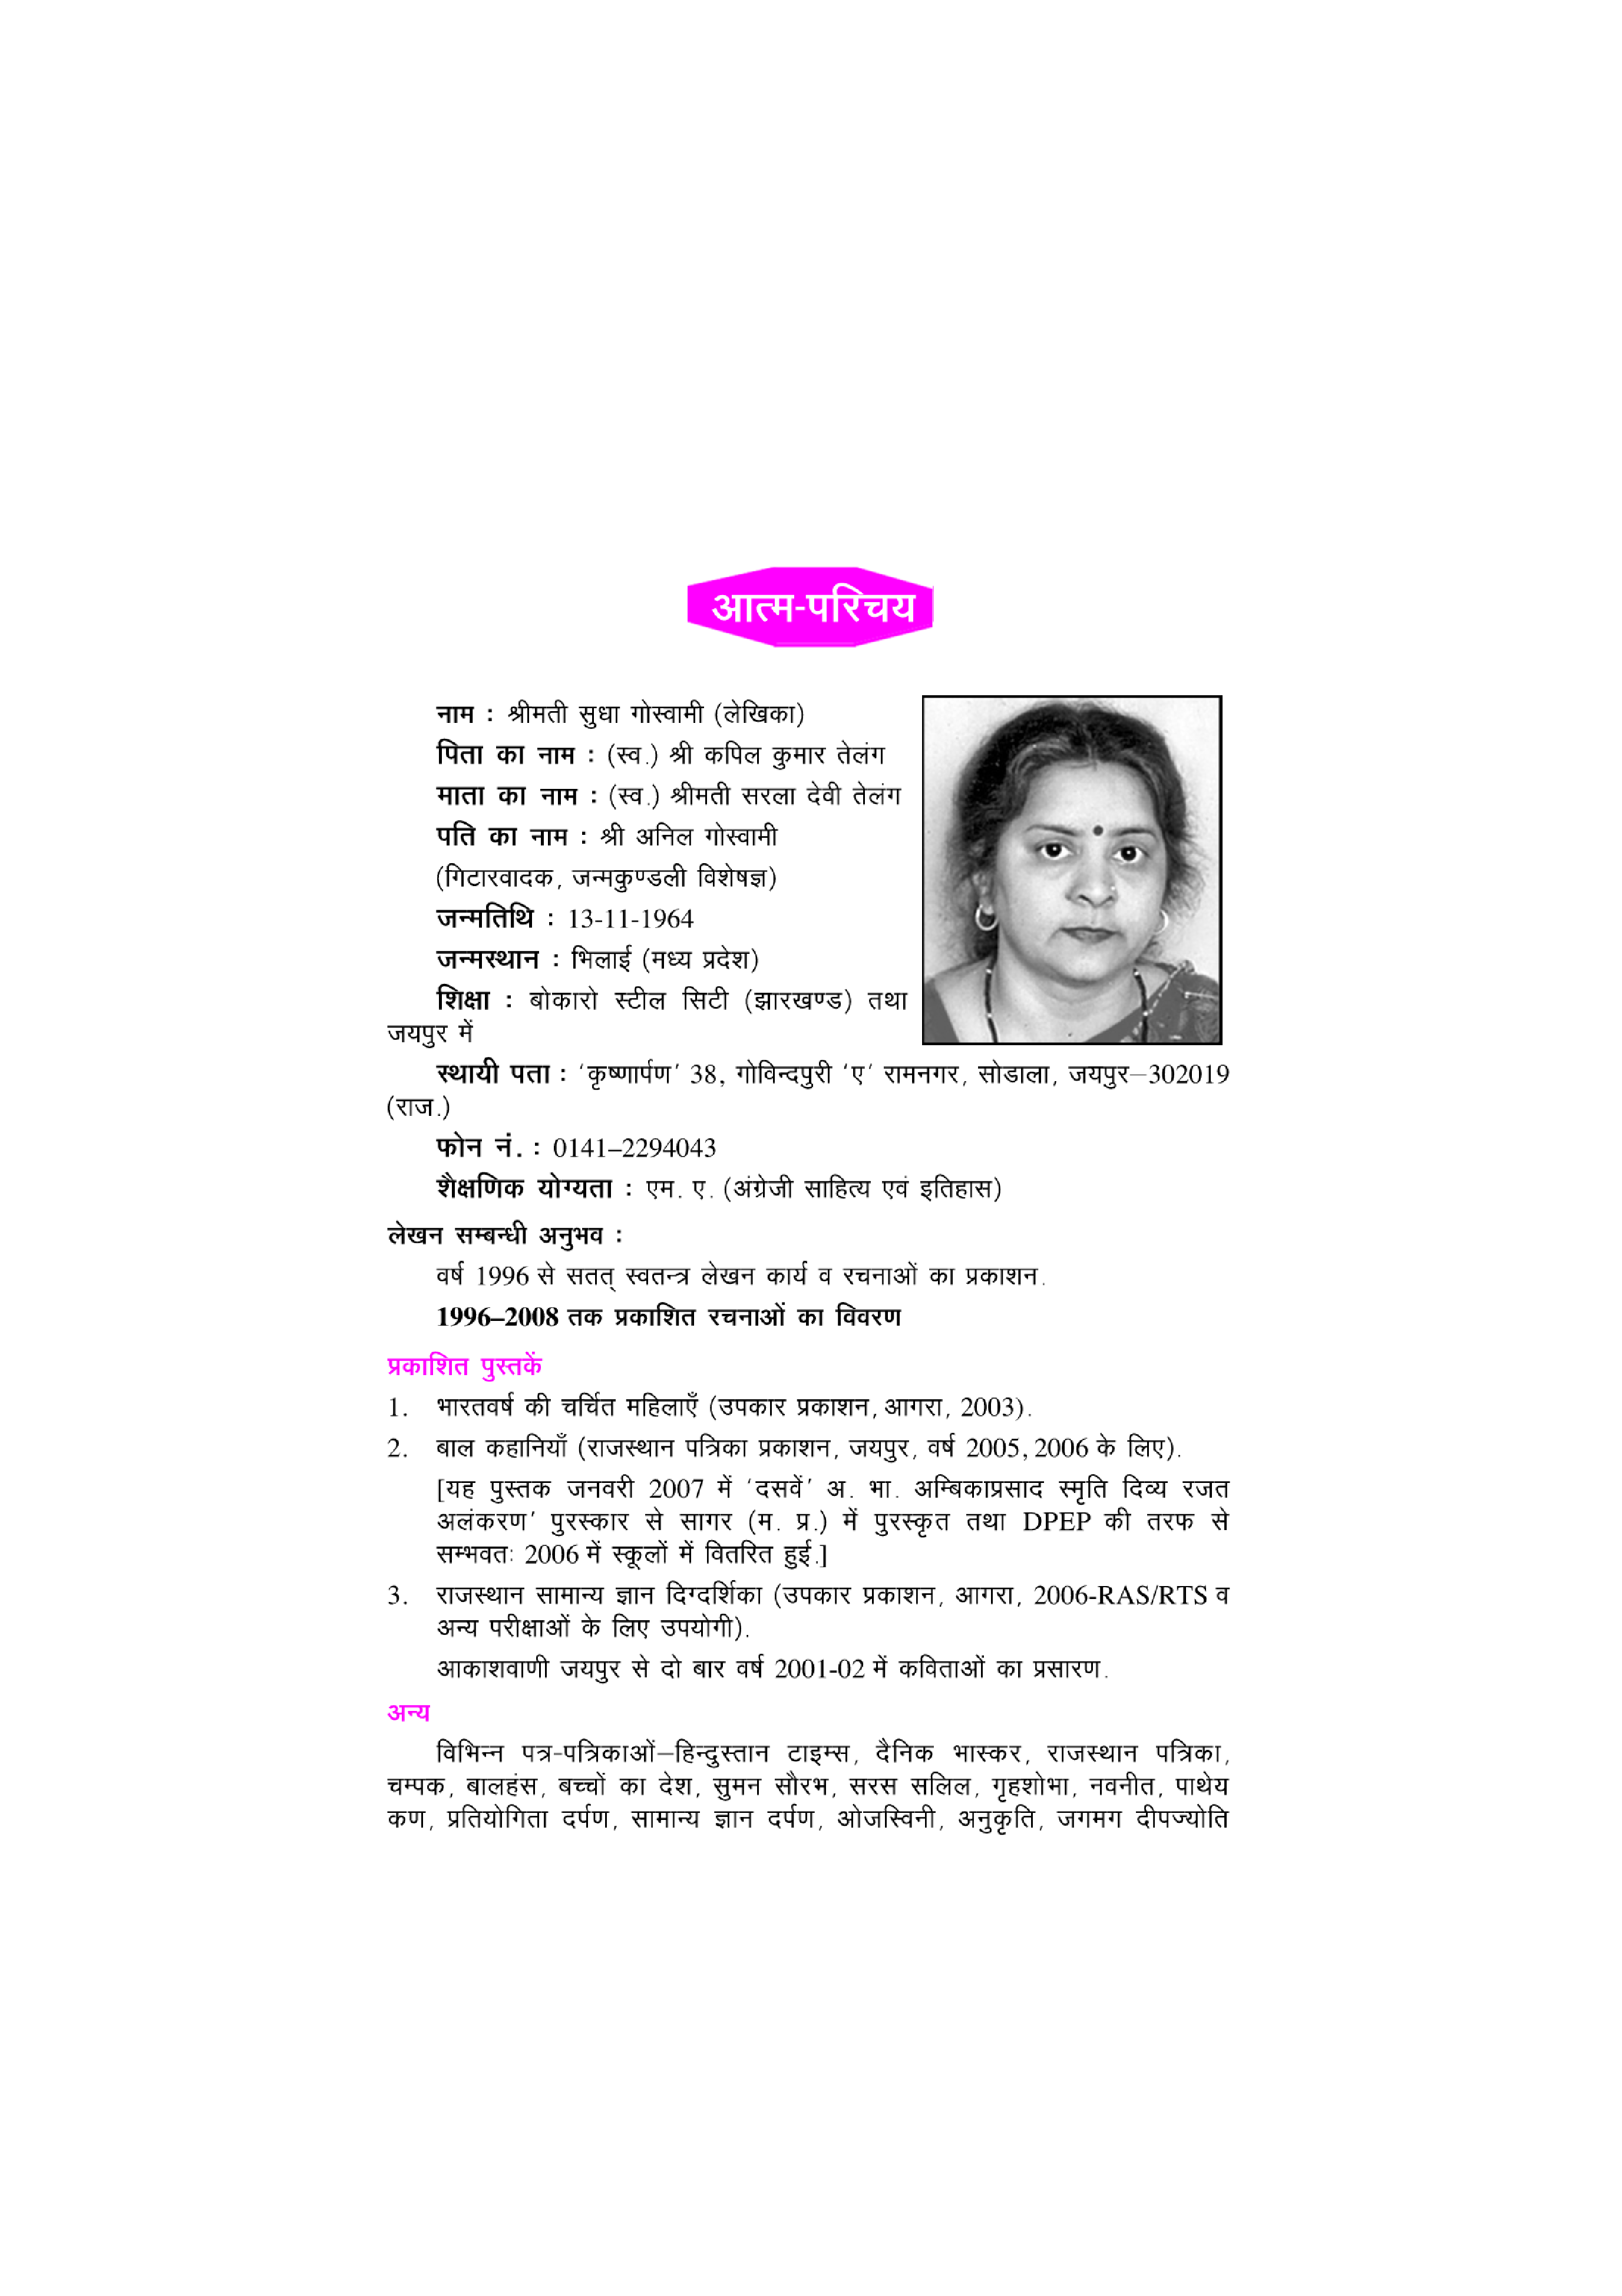 आत्म-परिचय
नाम : श्रीमती सुधा गोस्वामी (लेखिका)
पिता का नाम : (स्व.) श्री कपिल कुमार तेलंग
माता का नाम : (स्व.) श्रीमती सरला देवी तेलंग
पति का नाम : श्री अनिल गोस्वामी
(गिटारवादक, जन्मकुण्डली विशेषज्ञ)
जन्मतिथि : 13-11-1964
जन्मस्थान : भिलाई (मध्य प्रदेश)
शिक्षा : बोकारो स्टील सिटी (झारखण्ड) तथा
जयपुर में
स्थायी पता : ‘कृष्णार्पण’ 38, गोविन्दपुरी ‘ए’ रामनगर, सोडाला, जयपुर–302019
(राज.)
फोन नं. : 0141–2294043
शैक्षणिक योग्यता : एम. ए. (अंग्रेजी साहित्य एवं इतिहास)
लेखन सम्बन्धी अनुभव :
वर्ष 1996 से सतत् स्वतन्त्र लेखन कार्य व रचनाओं का प्रकाशन.
1996–2008 तक प्रकाशित रचनाओं का विवरण
प्रकाशित पुस्तकें
1. भारतवर्ष की चर्चित महिलाएँ (उपकार प्रकाशन, आगरा, 2003).
2. बाल कहानियाँ (राजस्थान पत्रिका प्रकाशन, जयपुर, वर्ष 2005, 2006 के लिए).
[यह पुस्तक जनवरी 2007 में ‘दसवें’ अ. भा. अम्बिकाप्रसाद स्मृति दिव्य रजत
अलंकरण’ पुरस्कार से सागर (म. प्र.) में पुरस्कृत तथा DPEP की तरफ से
सम्भवतः 2006 में स्कूलों में वितरित हुई.]
3. राजस्थान सामान्य ज्ञान दिग्दर्शिका (उपकार प्रकाशन, आगरा, 2006-RAS/RTS व
अन्य परीक्षाओं के लिए उपयोगी).
आकाशवाणी जयपुर से दो बार वर्ष 2001-02 में कविताओं का प्रसारण.
अन्य
विभिन्न पत्र-पत्रिकाओं–हिन्दुस्तान टाइम्स, दैनिक भास्कर, राजस्थान पत्रिका,
चम्पक, बालहंस, बच्चों का देश, सुमन सौरभ, सरस सलिल, गृहशोभा, नवनीत, पाथेय
कण, प्रतियोगिता दर्पण, सामान्य ज्ञान दर्पण, ओजस्विनी, अनुकृति, जगमग दीपज्योति